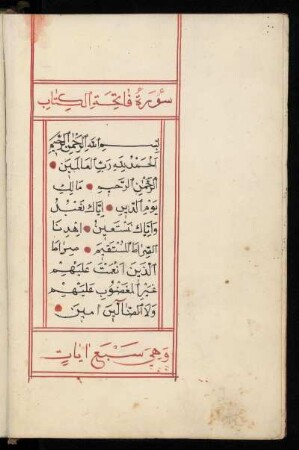 سورة فاتحة الكتاب
بسم الله الرحمن الرحيم
الحمد لله رب العالمين
الرحمن الرحيم مالك
يوم الدين إياك نعبد
وإياك نستعين إهدنا
الصراط المستقيم صراط
الذين أنعمت عليهم
غير المغضوب عليهم
ولا الضالين امين
وهي سبع ايات